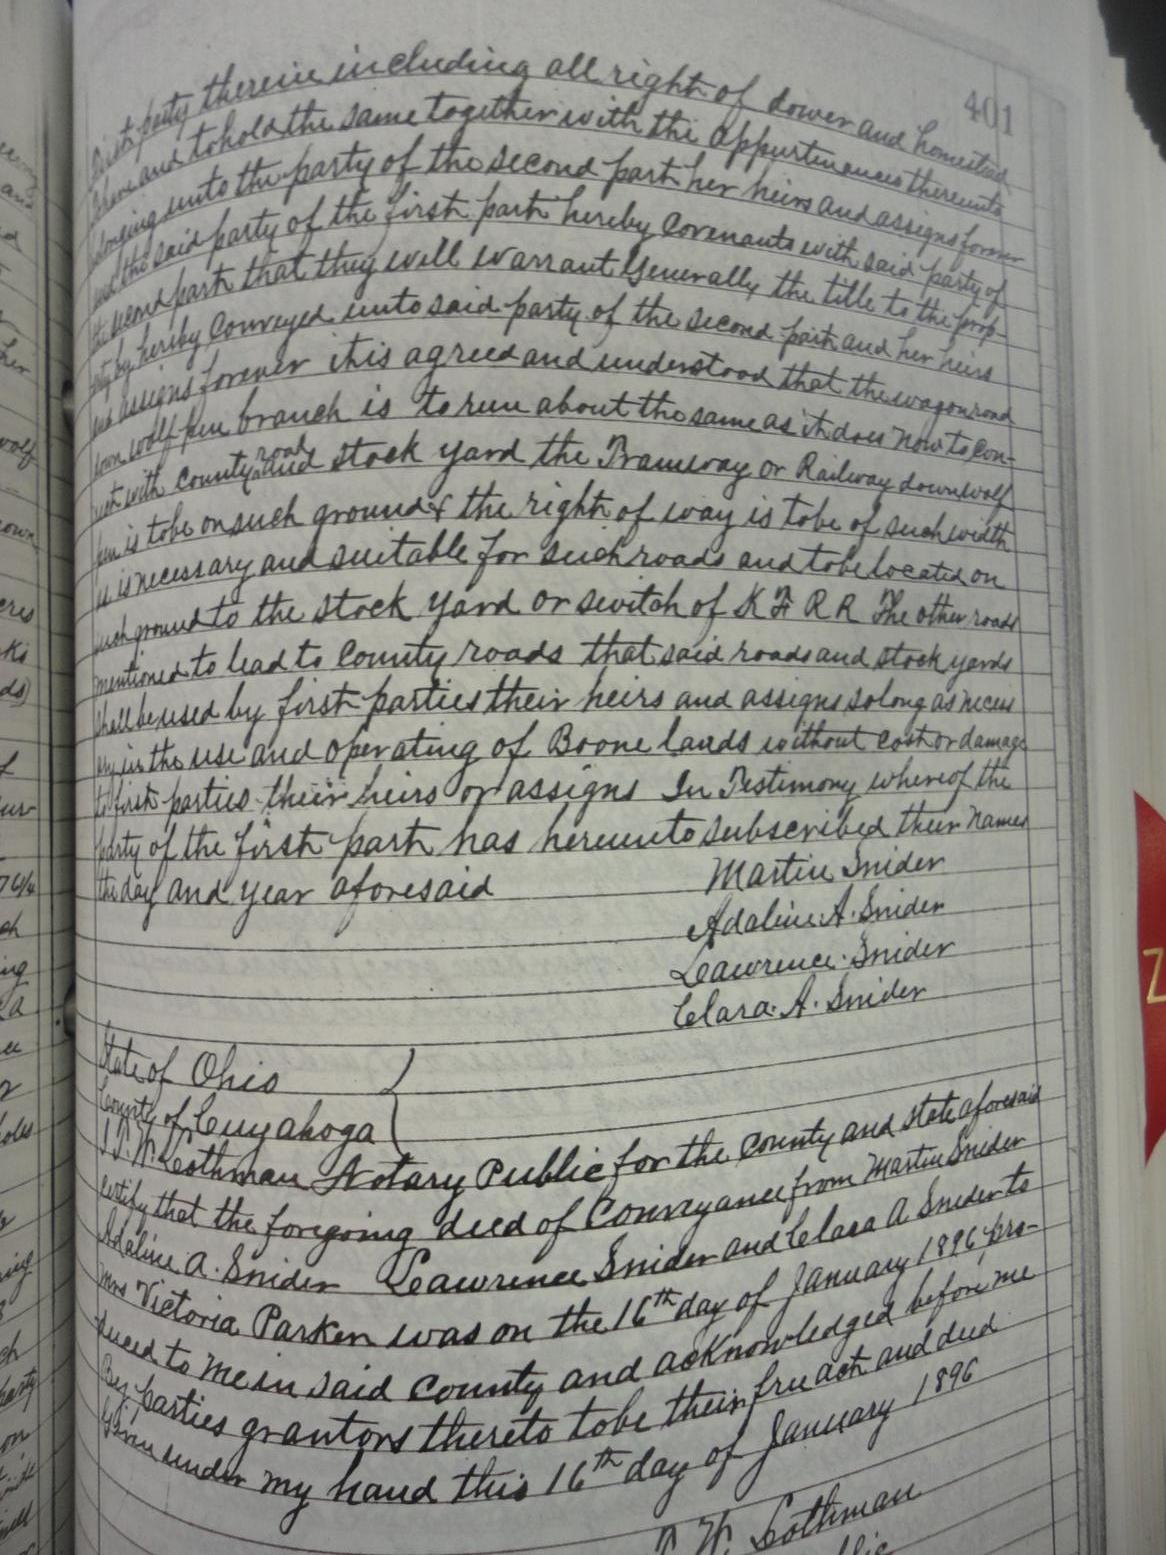 401
first party therein including all right of dower and homestead
have and to hold the same together with the appurtenances thereunto
belonging unto the party of the second part her heirs and assigns forever
and the said party of the first part hereby Covenants with said party of
the second part that they will Warrant Generally the title to the prop-
erty by hereby Conveyed unto said party of the second part and her heirs
and assigns forever it is agreed and understood that the wagon road
down Wolf pen branch is to run about the same as it does now to con-
nect with County road and stock yard the Tramway or Railway down wolf
pen is to be on such ground & the right of way is to be of such width
as is necessary and suitable for such roads and to be located on
such ground to the stock yard or switch of K F R R The other roads
mentioned to lead to County roads that said roads and stock yards
shall be used by first parties their heirs and assigns so long as necess
ary in the use and operating of Boone lands without cost or damage
to first parties their heirs or assigns In Testimony whereof the
party of the first part has hereunto subscribed their names
the day and year aforesaid
Martin Snider
Adaline A. Snider
Lawrence Snider
Clara. A. Snider
State of Ohio
County of Cuyahoga
I T. W. Lothman Notary Public for the County and state aforesaid
certify that the foregoing deed of Conveyance from Martin Snider
Adaline A. Snider Lawrence Snider and Clara A Snider to
Mrs Victoria Parker was on the 16th day of January 1896 pro-
duced to me in said County and acknowledged before me
By parties grantors thereto to be their free act and deed
Given under my hand this 16th day of January 1896
T. W. Lothman